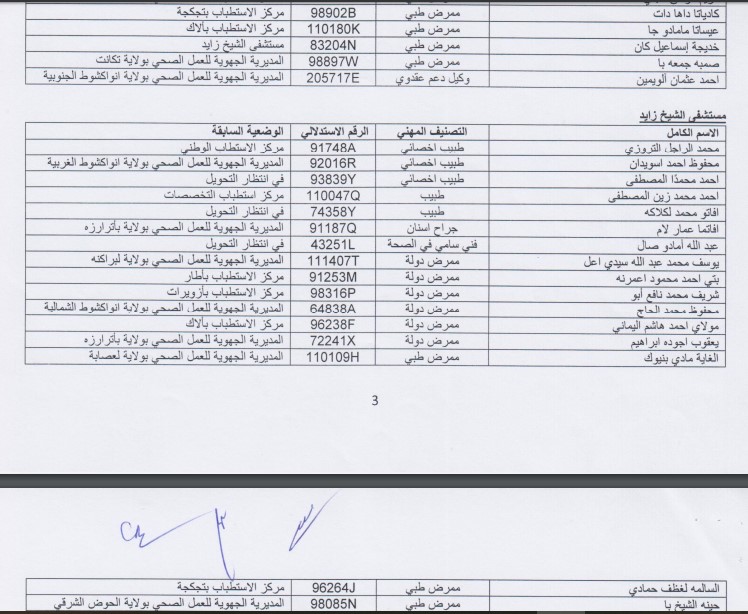 كادياتا داها دات ممرض طبي 98902B مركز الاستطباب بتجكجة
عيساتا مامادو جا ممرض طبي 110180K مركز الاستطباب بألاك
خديجة إسماعيل كان ممرض طبي 83204N مستشفى الشيخ زايد
صمبه جمعه با ممرض طبي 98897W المديرية الجهوية للعمل الصحي بولاية تكانت
احمد عثمان ألويمين وكيل دعم عقدوي 205717E المديرية الجهوية للعمل الصحي بولاية انواكشوط الجنوبية
مستشفى الشيخ زايد
الاسم الكامل التصنيف المهني الرقم الاستدلالي الوضعية السابقة
محمد الراجل التروزي طبيب اخصائي 91748A مركز الاستطاب الوطني
محفوظ احمد اسويدان طبيب اخصائي 92016R المديرية الجهوية للعمل الصحي بولاية انواكشوط الغربية
احمد محمدا المصطفى طبيب اخصائي 93839Y في انتظار التحويل
احمد محمد زين المصطفى طبيب 110047Q مركز استطباب التخصصات
افاتو محمد لكلاكه طبيب 74358Y في انتظار التحويل
افاتما عمار لام جراح اسنان 91187Q المديرية الجهوية للعمل الصحي بولاية بأترارزه
عبد الله أمادو صال فني سامي في الصحة 43251L في انتظار التحويل
يوسف محمد عبد الله سيدي اعل ممرض دولة 111407T المديرية الجهوية للعمل الصحي بولاية لبراكنه
بتي احمد محمود اعمرنه ممرض دولة 91253M مركز الاستطباب بأطار
شريف محمد نافع أبو ممرض دولة 98316P مركز الاستطباب بأزويرات
محفوظ محمد الحاج ممرض دولة 64838A المديرية الجهوية للعمل الصحي بولاية انواكشوط الشمالية
مولاي احمد هاشم اليماني ممرض دولة 96238F مركز الاستطباب بألاك
يعقوب اجوده ابراهيم ممرض دولة 72241X المديرية الجهوية للعمل الصحي بولاية بأترارزه
الغاية مادي بنيوك ممرض طبي 110109H المديرية الجهوية للعمل الصحي بولاية لعصابة
3
السالمه لغظف حمادي ممرض طبي 96264J مركز الاستطباب بتجكجة
حينه الشيخ با ممرض طبي 98085N المديرية الجهوية للعمل الصحي بولاية الحوض الشرقي